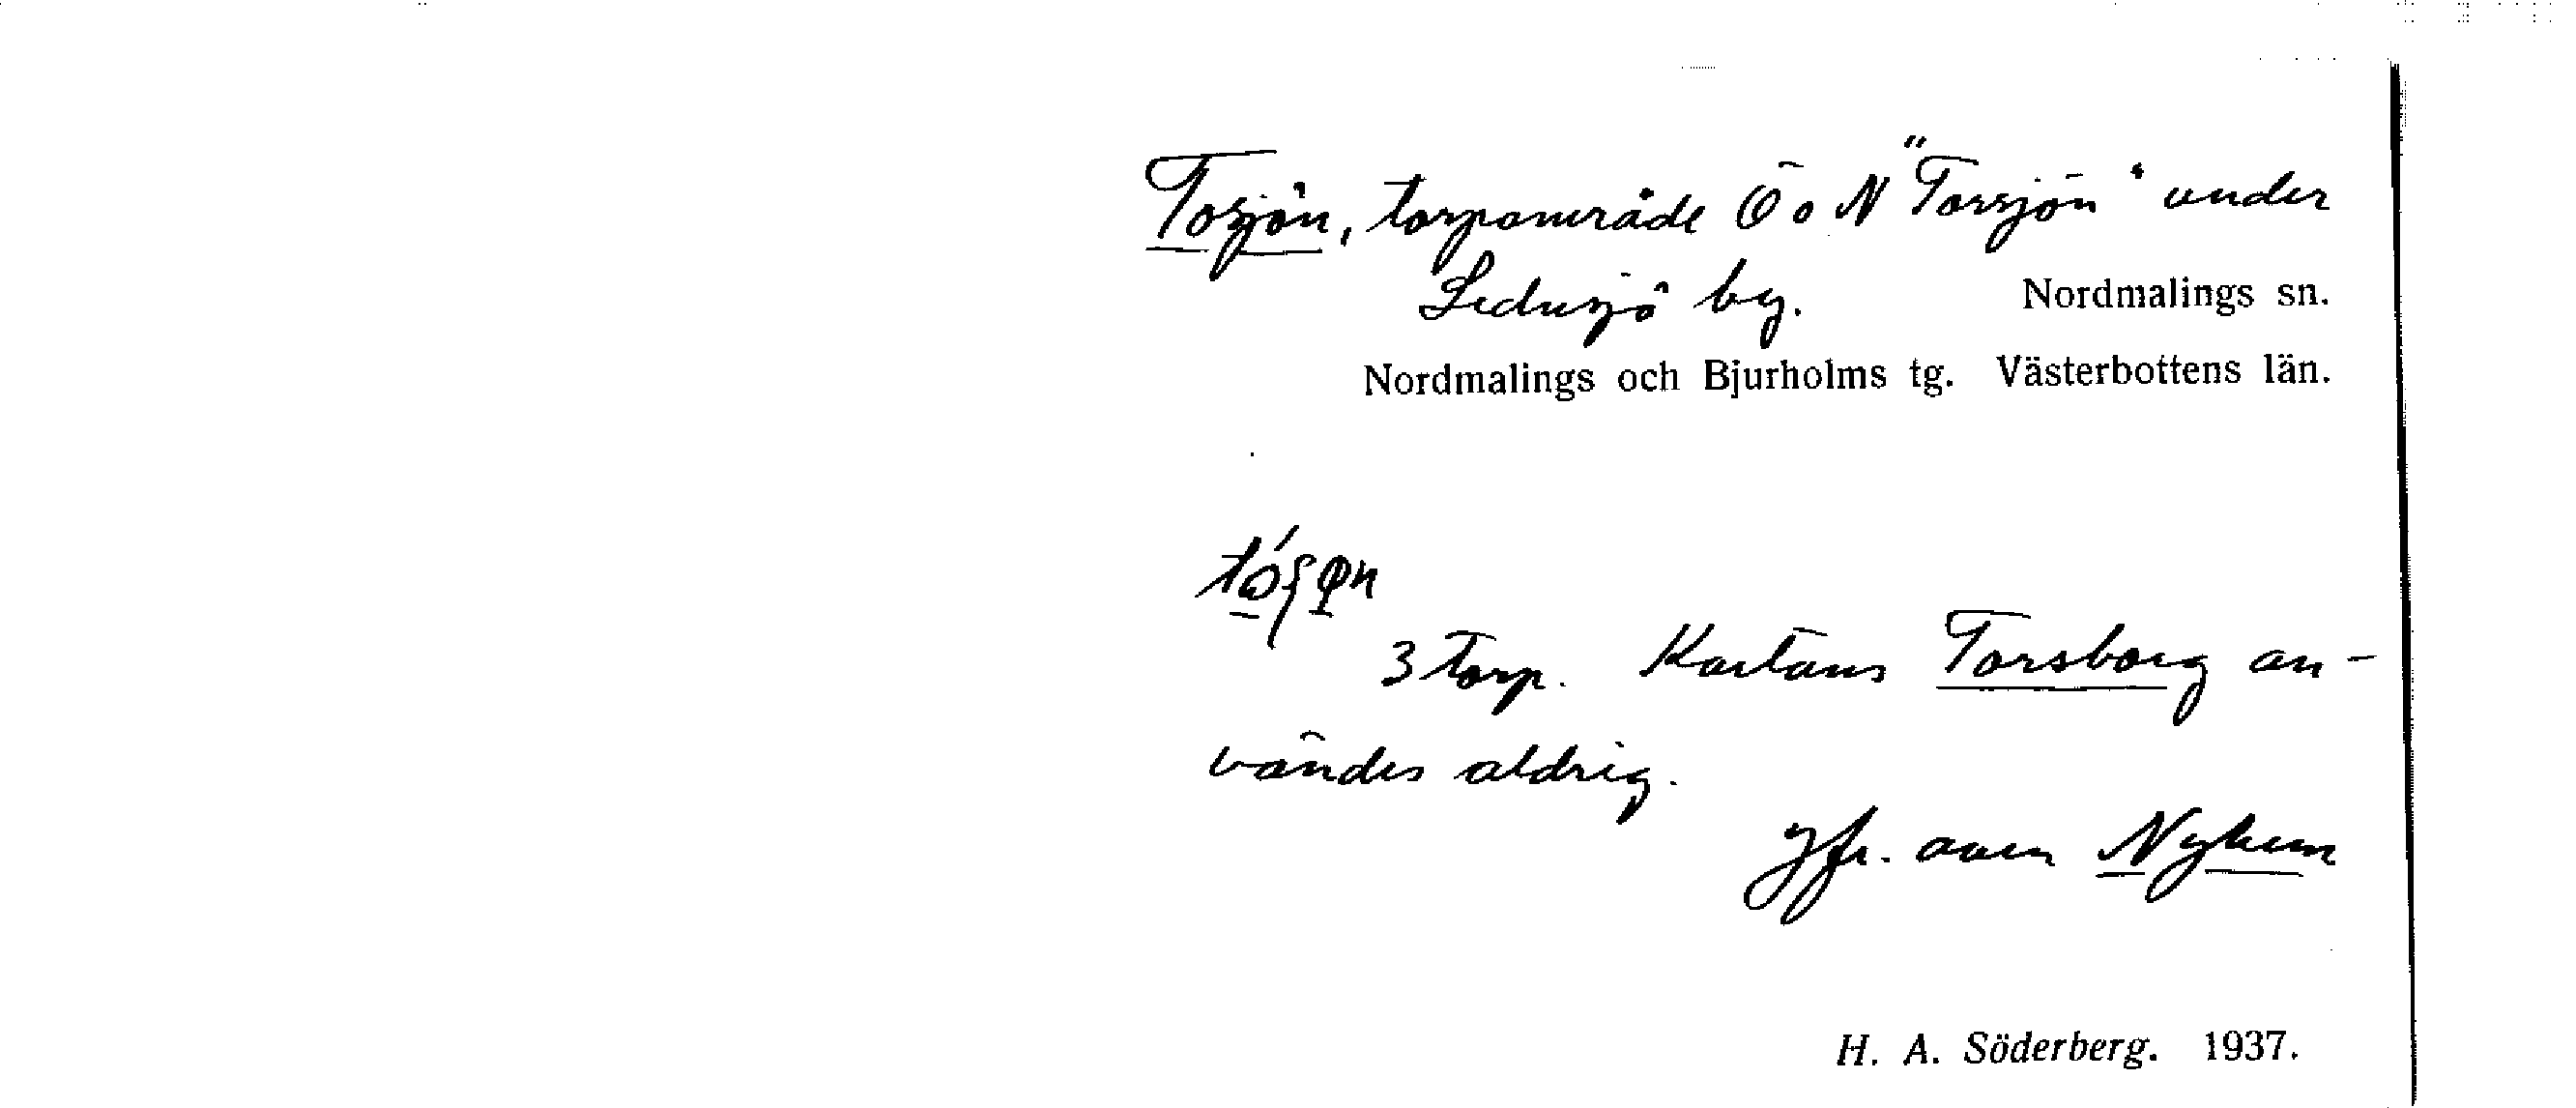 Tosjön, torpområde Ö o N "Torsjön" under
Ledusjö by. Nordmalings sn.
Nordmalings och Bjurholms tg. Västerbottens län.
3 torp. Kartans Torsborg an-
vändes aldrig.
Jfr. även Nyhem
H. A. Söderberg. 1937.